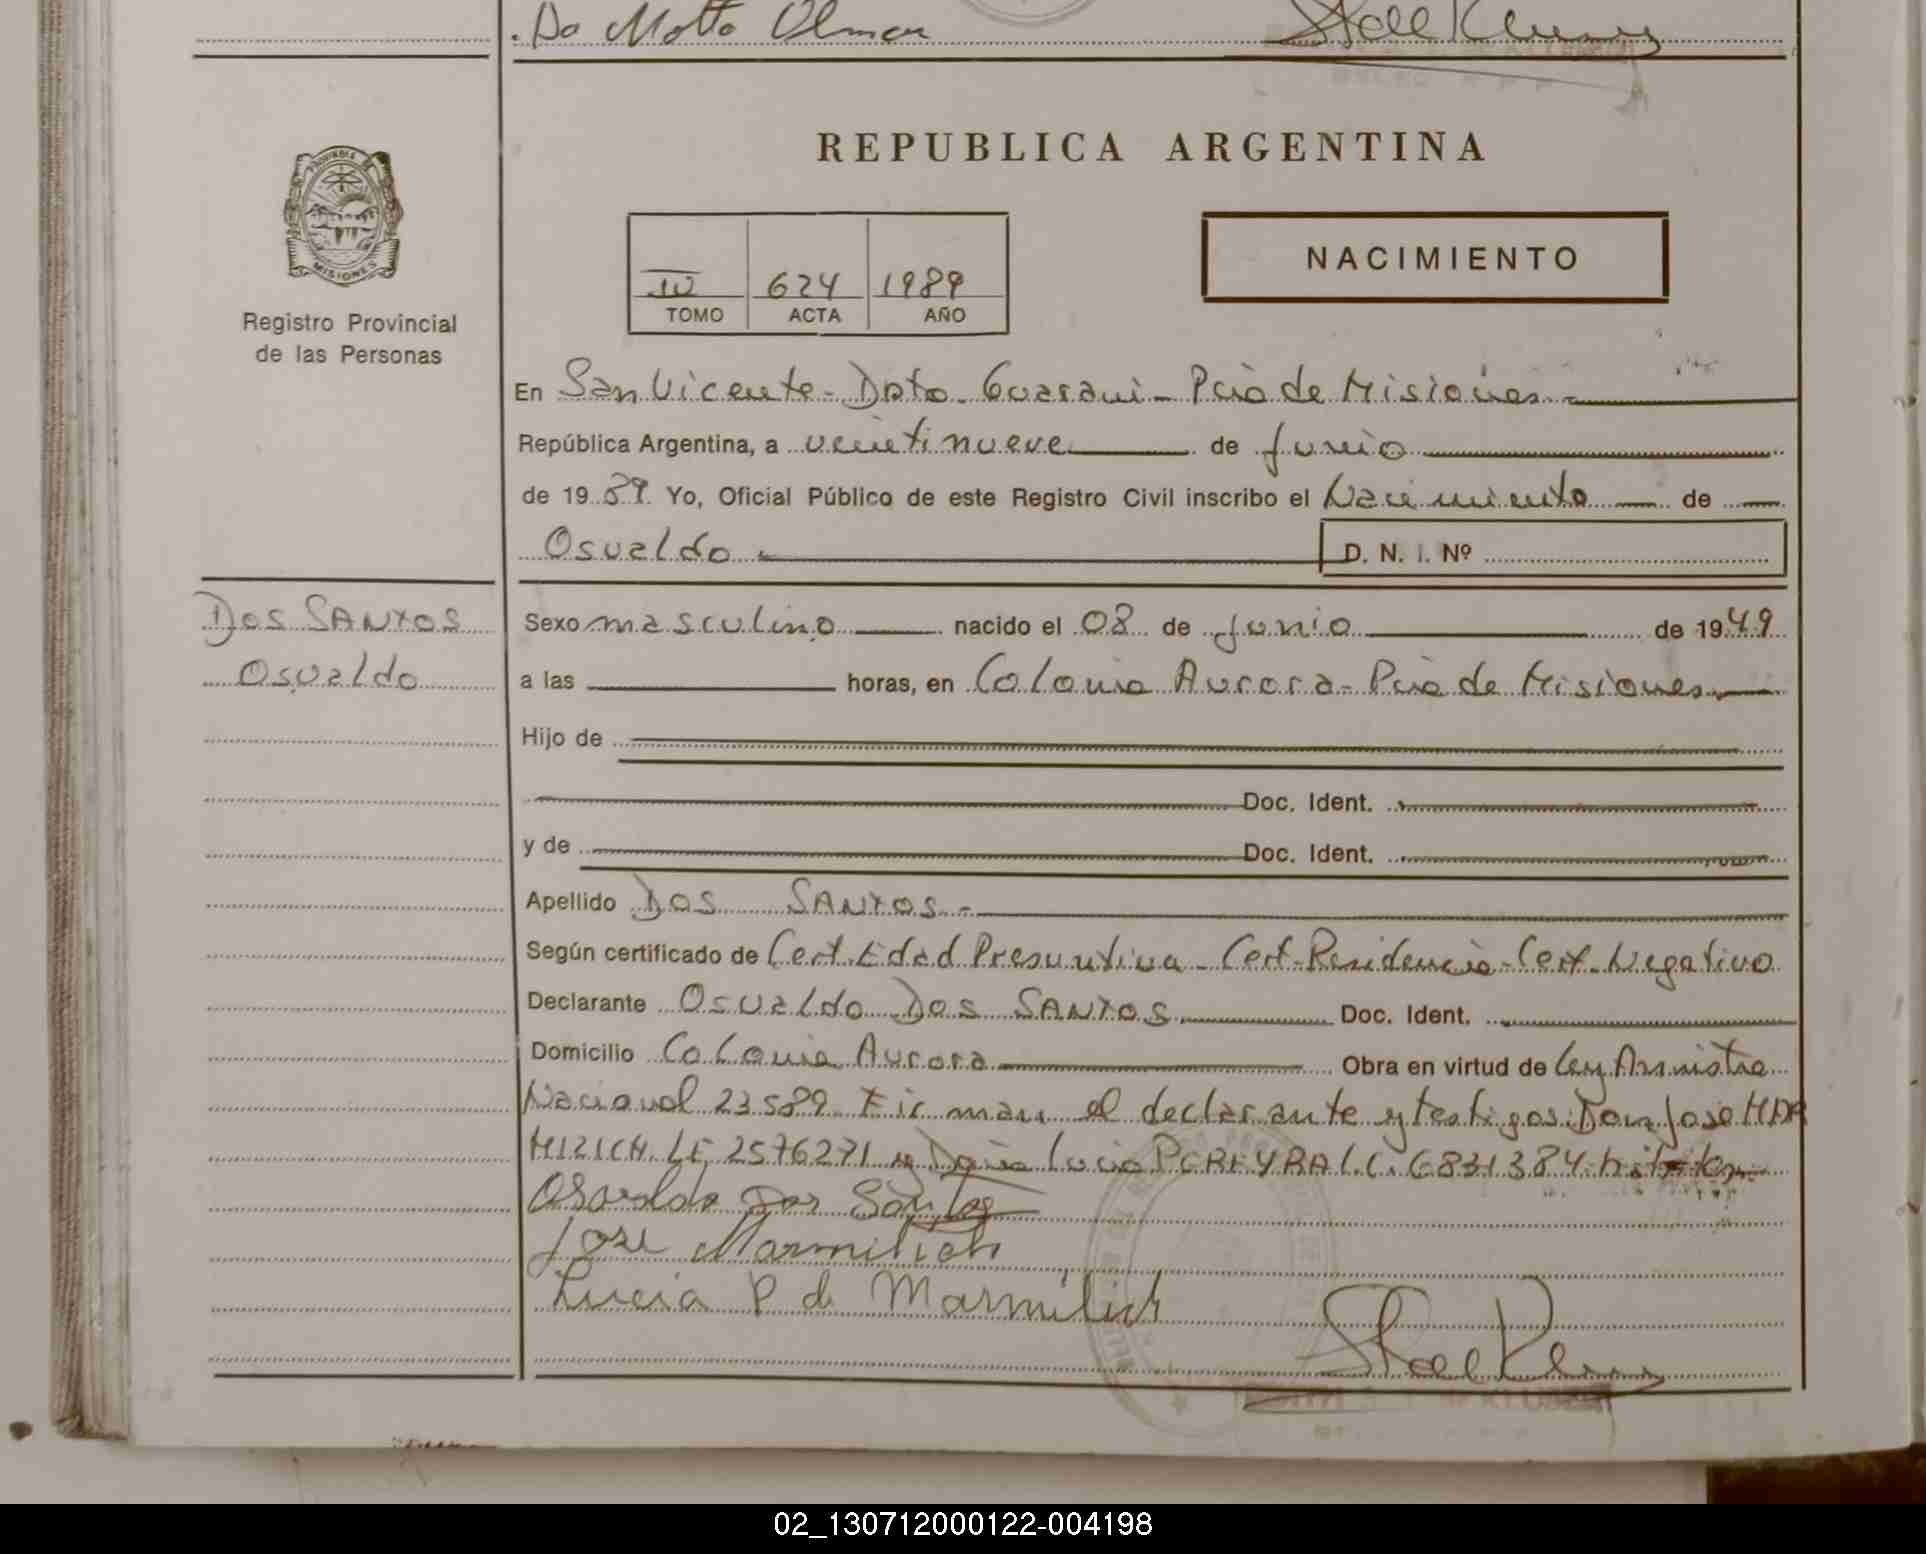 Da Motto Olmar
REPUBLICA ARGENTINA
PROVINCIA DE
MISIONES
Registro Provincial
de las Personas
IV 624 1989
TOMO ACTA AÑO
NACIMIENTO
En San Vicente - Dpto. Guarani - Pcia de Misiones.-
República Argentina, a veintinueve de Junio
de 1989 Yo, Oficial Público de este Registro Civil inscribo el Nacimiento de
Osvaldo
D. N. I. Nº
DOS SANTOS
Osvaldo
Sexo masculino nacido el 08 de junio de 1949
a las horas, en Colonia Aurora - Pcia de Misiones
Hijo de
Doc. Ident.
y de Doc. Ident.
Apellido DOS SANTOS.-
Según certificado de Cert. Edad Presuntiva - Cert. Residencia - Cert. Negativo
Declarante Osvaldo DOS SANTOS Doc. Ident.
Domicilio Colonia Aurora Obra en virtud de Ley Amnistia
Nacional 23589 Firman el declarante y testigos: Don Jose
LE 2576271 y Doña Lucia L.C. 6831384
Osvaldo Dos Santos
Jose Marmilich
Lucia P de Marmilich
02_130712000122-004198